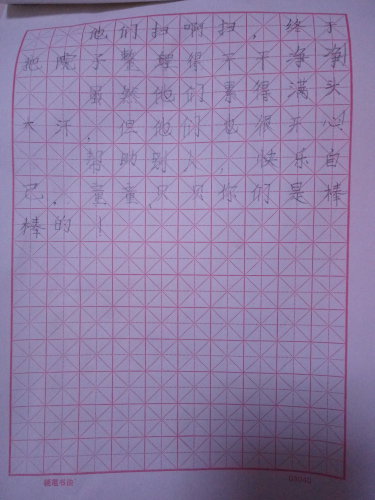 他们扫啊扫，终于
把院子整理得干干净净
虽然他们累得满头
大汗，但他们也很开心
帮助别人，快乐自
己。童童、贝贝你们是棒
棒的！
书法